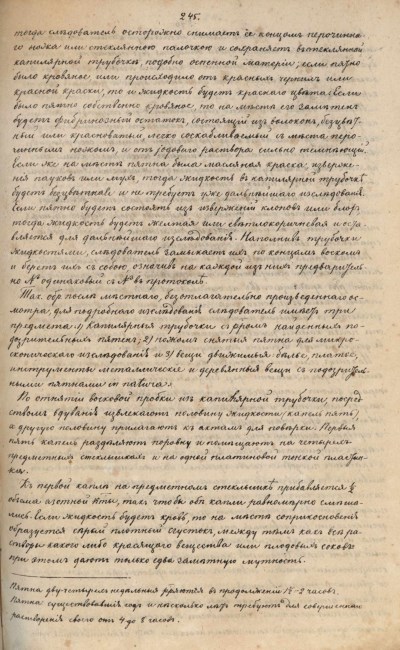 245.
тогда слѣдователь осторожно снимаетъ ее концомъ перочинна-
го ножка или стеклянною палочкою и сохраняетъ въ стеклянной
капилярной трубочкѣ, подобно оспенной матеріи; если пятно
было кровяное или происходило отъ красныхъ чернилъ или
красной краски, то и жидкость будетъ краснаго цвѣта; (если
было пятно собственно кровяное, то на мѣстѣ его замѣтенъ
будетъ фибринозный остатокъ, состоящій изъ волоконъ, безцвѣт-
ный или красноватый, легко соскабливаемый съ мѣста перо-
чиннымъ ножкомъ и отъ іодоваго раствора сильно темнѣющій)
если же на мѣстѣ пятна была масляная краска, изверже-
нія пауковъ или мухъ, тогда жидкость въ капилярной трубочкѣ
будетъ безцвѣтная и не требуетъ уже дальнѣйшаго изслѣдованія
если пятно будетъ состоять изъ изверженій клоповъ или блохъ
тогда жидкость будетъ желтая или свѣтлокоричневая и оста-
вляется для дальнѣйшаго изслѣдованія. Наполнивъ трубочки
жидкостями, слѣдователь замыкаетъ ихъ по концамъ воскомъ
и беретъ ихъ съ собою, означивъ на каждой изъ нихъ предваритель-
но № одинаковый съ № въ протоколѣ.
Так. обр. послѣ мѣстнаго, безотлагательно произведеннаго ос-
мотра, для подробнаго изслѣдованія слѣдователь имѣетъ три
предмета: 1) капилярныя трубочки съ найденныхъ по-
дозрительныхъ пятенъ; 2) ножомъ снятыя пятна для микро-
скопическаго изслѣдованія и 3) вещи движимыя: бѣлье, платье,
инструменты металлическіе и деревянныя вещи съ подозритель-
ными пятнами
По отнятіи восковой пробки изъ капилярной трубочки посред-
ствомъ вдуванія извлекаютъ половину жидкости (капель пять),
а другую половину прилагаютъ къ актамъ для повѣрки. Первыя
пять капель раздѣляютъ поровну и помѣщаютъ на четырехъ
предметныхъ стеклышкахъ и на одной платиновой тонкой пластин-
кѣ.
Къ первой каплѣ на предметномъ стеклышкѣ прибавляется
объема азотной к-ты, такъ чтобы обѣ капли равномѣрно смѣша-
лись. Если жидкость будетъ кровь, то на мѣстѣ соприкосновенія
образуется сѣрый плотный сгустокъ, между тѣмъ какъ всѣ ра-
створы какого либо красящаго вещества или плодовыхъ соковъ
при этомъ даютъ только едва замѣтную мутность.
Пятна существовавшія года и нѣсколько лѣтъ требуютъ для совершеннаго
растворенія своего отъ 4 до 8 часовъ.